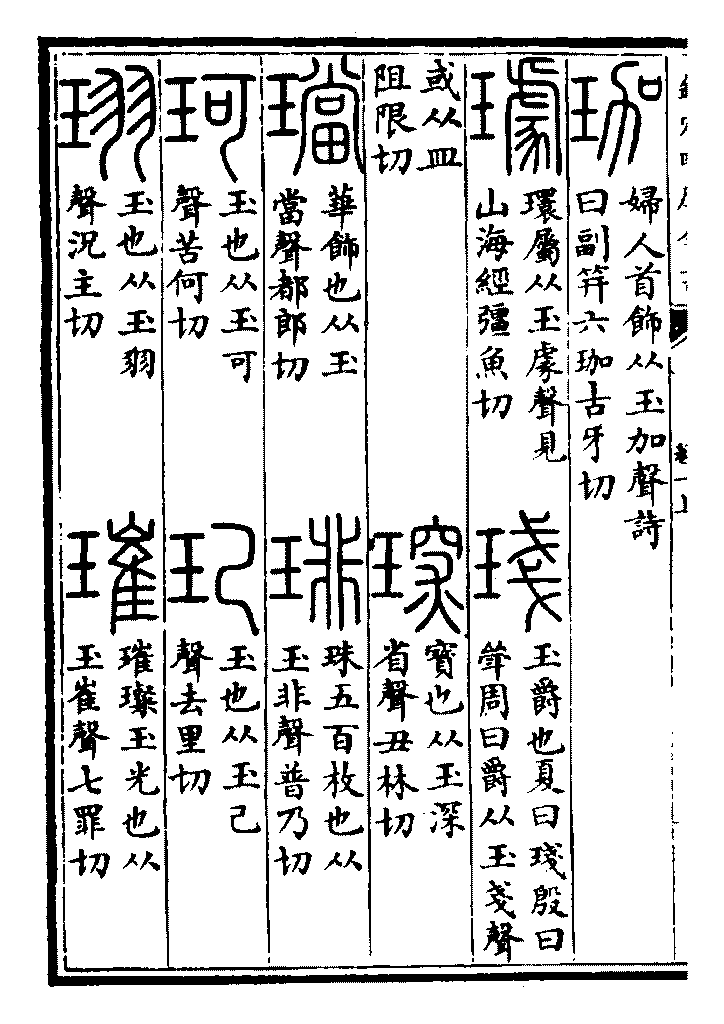 珈
婦人首飾从玉加聲詩
曰副笄六珈古牙切
璩
環屬从玉豦聲見
山海經彊魚切
琖
玉爵也夏曰琖殷曰
斝周曰爵从玉戔聲
或从皿
阻限切
琛
寶也从玉深
省聲丑林切
璫
華飾也从玉
當聲都郎切
琲
珠五百枚也从
玉非聲普乃切
珂
玉也从玉可
聲苦何切
玘
玉也从玉己
聲去里切
珝
玉也从玉羽
聲況主切
璀
璀璨玉光也从
玉崔聲七罪切